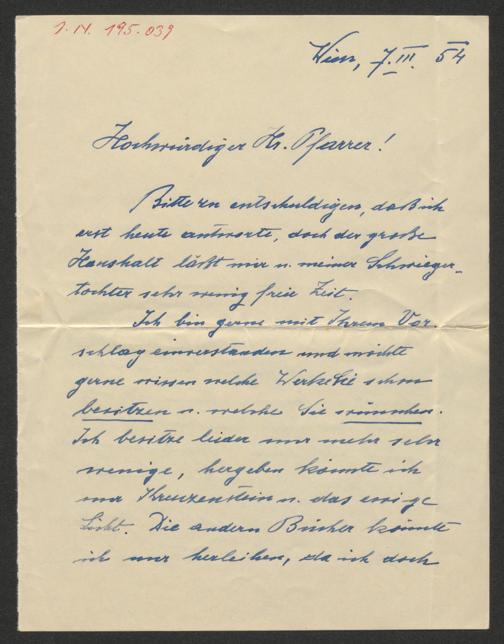 I. N. 195.039
Wien, 7. III. 54
Hochwürdiger Hr. Pfarrer!
Bitte zu entschuldigen, daß ich
erst heute antworte, doch der große
Haushalt läßt mir u. meiner Schwieger-
tochter sehr wenig freie Zeit.
Ich bin gerne mit Ihrem Vor-
schlag einverstanden und möchte
gerne wissen welche Werke Sie schon
besitzen u. welche Sie wünschen.
Ich besitze leider nur mehr sehr
wenige, hergeben könnte ich
nur Kreuzenstein u. das ewige
Licht. Die andern Bücher könnte
ich nur herleihen, da ich doch